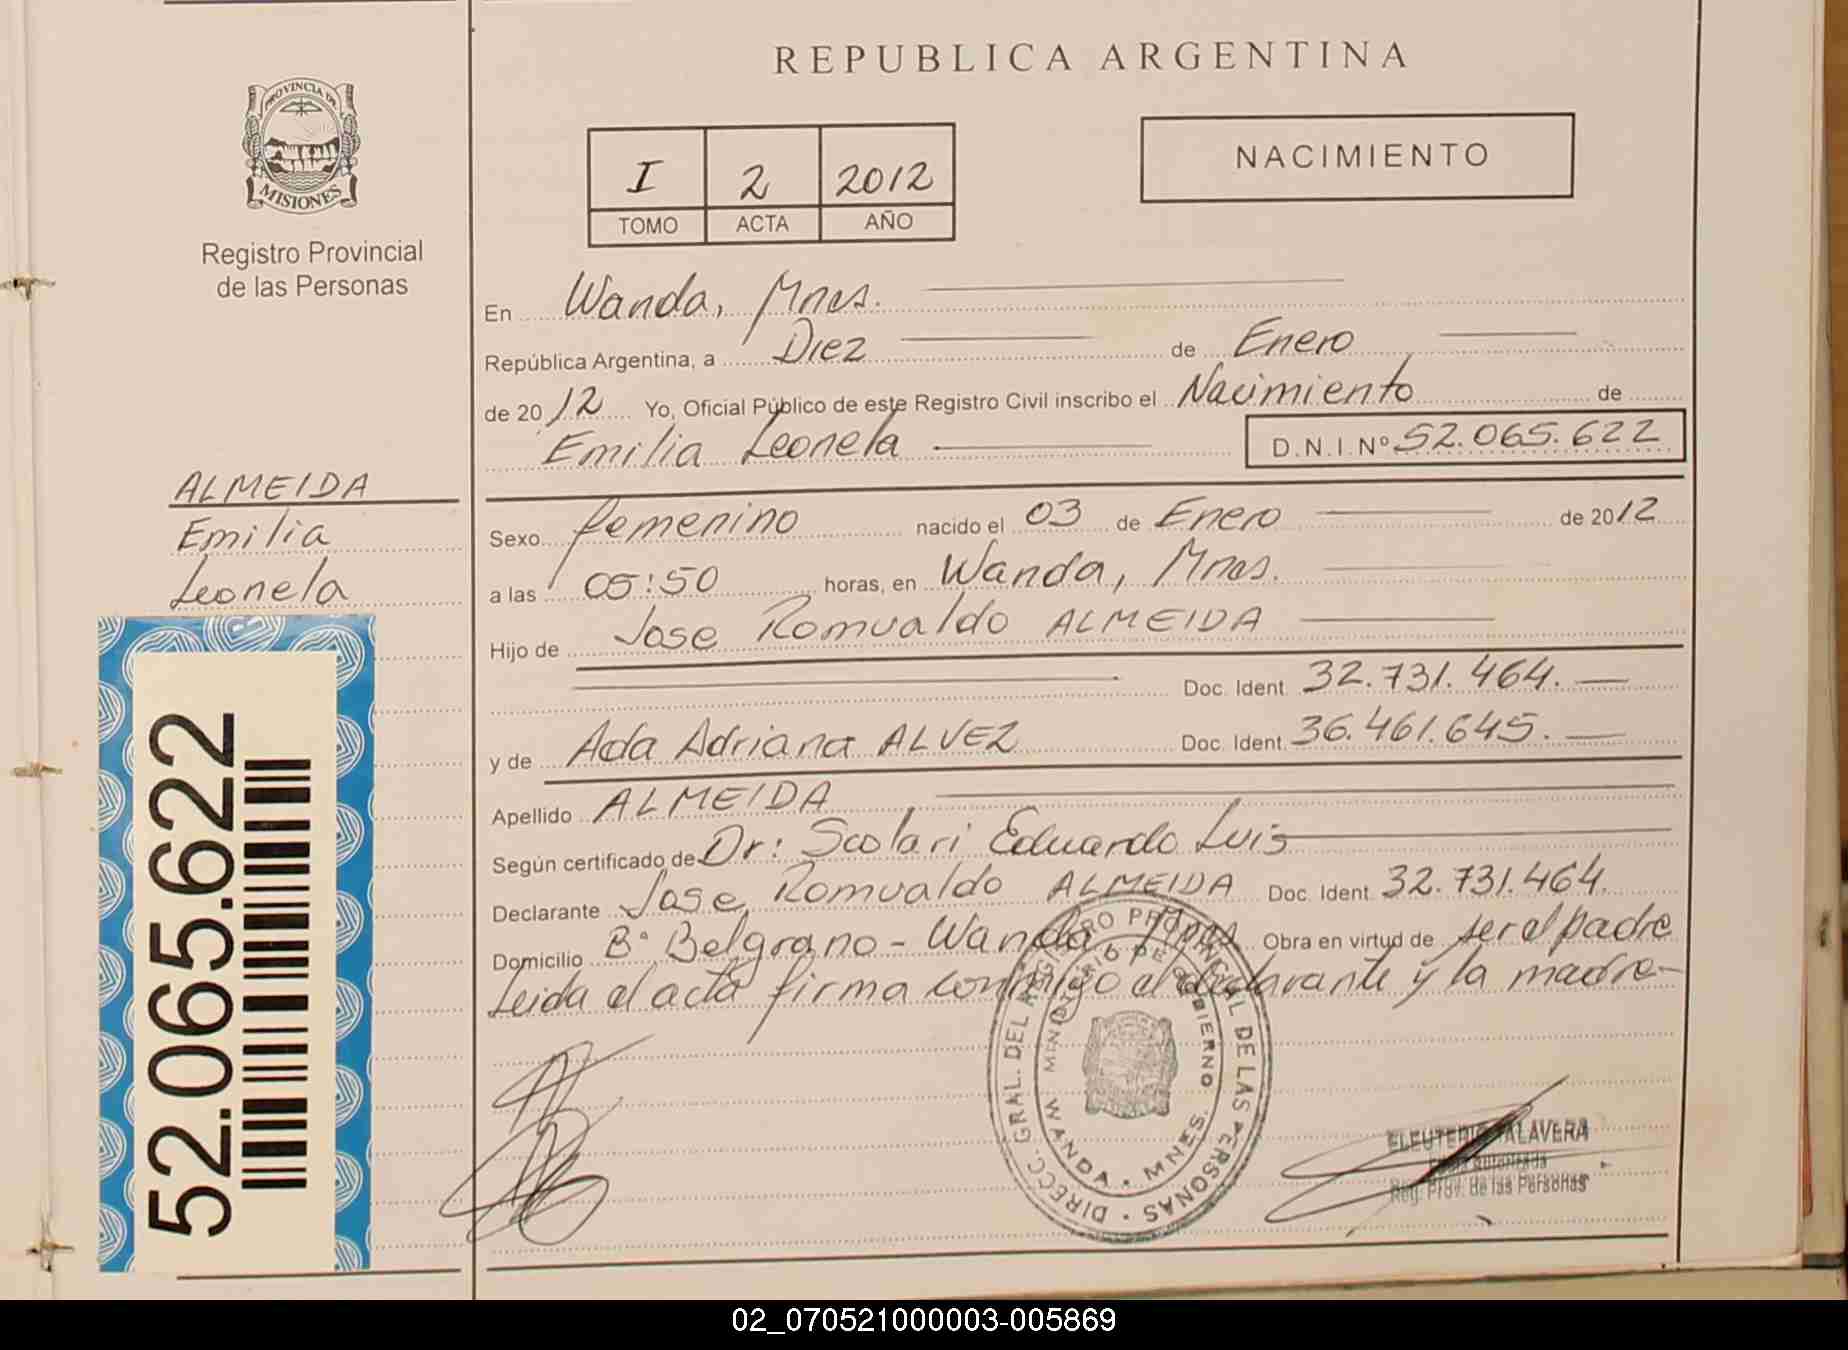 REPUBLICA ARGENTINA
PROVINCIA DE
MISIONES
Registro Provincial
de las Personas
I 2 2012
TOMO ACTA AÑO
NACIMIENTO
En Wanda, Mnes.
República Argentina, a Diez de Enero
de 2012 Yo, Oficial Público de este Registro Civil inscribo el Nacimiento de
Emilia Leonela D.N.I. Nº 52.065.622
ALMEIDA
Emilia
Leonela
52.065.622
Sexo femenino nacido el 03 de Enero de 2012
a las 05:50 horas, en Wanda, Mnes.
Hijo de Jose Romualdo ALMEIDA
Doc. Ident. 32.731.464.
y de Ada Adriana ALVEZ Doc. Ident. 36.461.645.
Apellido ALMEIDA
Según certificado de Dr: Scolari Eduardo Luis
Declarante Jose Romualdo ALMEIDA Doc. Ident. 32.731.464.
Domicilio Bº Belgrano - Wanda Mnes Obra en virtud de ser el padre
Leida el acta firma conmigo el declarante y la madre-
DIRECC. GRAL. DEL REGISTRO PROVINCIAL DE LAS PERSONAS
MINISTERIO DE GOBIERNO
WANDA - MNES.
ELEUTERIO TALAVERA
Firma Autorizada
Reg. Prov. de las Personas
02_070521000003-005869